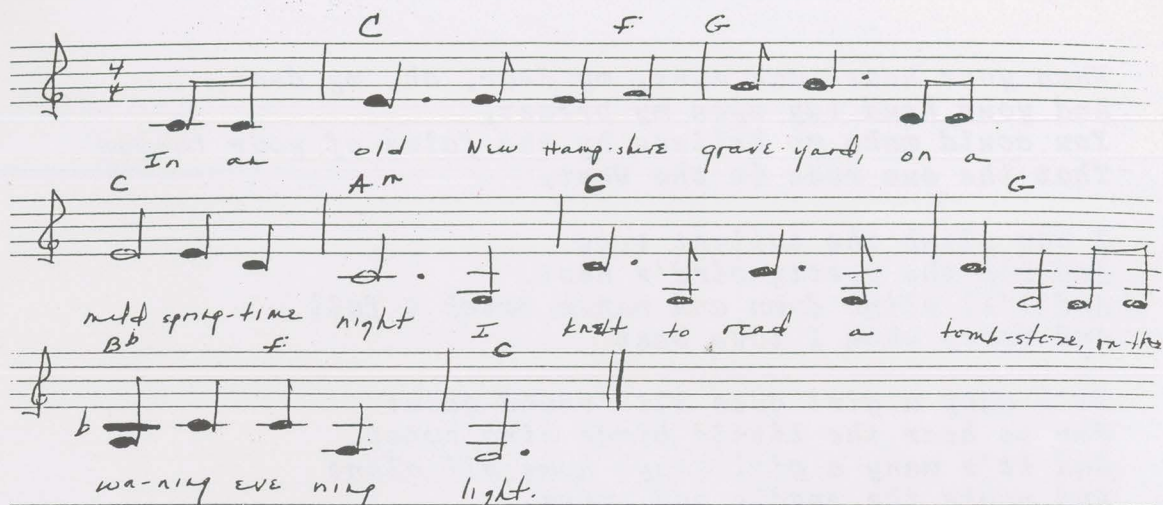 C F G
4
4
In an old New Hamp-shire grave-yard, on a
C Am C G
mild spring-time night I knelt to read a tomb-stone, on-the
Bb F C
b
wa-ning eve ning light.